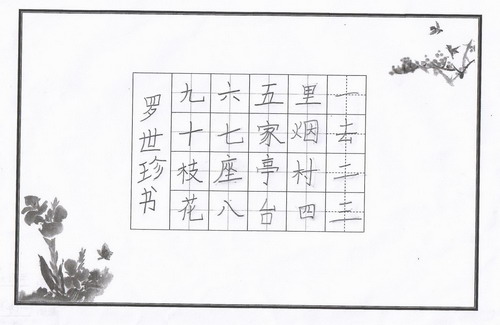 一去二三
里烟村四
五家亭台
六七座八
九十枝花
罗世珍书